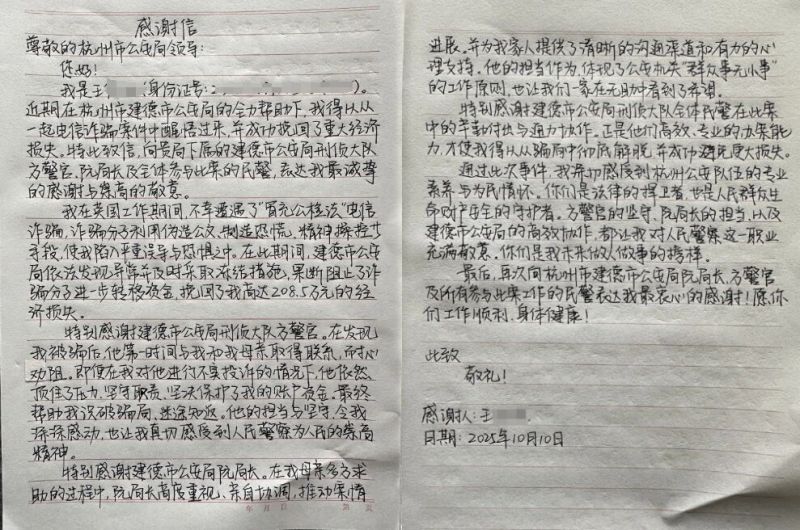 感谢信
尊敬的杭州市公安局领导:
您好!
我是王 (身份证号:2 )。
近期在杭州市建德市公安局的全力帮助下,我得以从
一起电信诈骗案件中醒悟过来,并成功挽回了重大经济
损失。特此致信,向贵局下属的建德市公安局刑侦大队
方警官、阮局长及全体参与此案的民警,表达我最诚挚
的感谢与崇高的敬意。
我在英国工作期间,不幸遭遇了“冒充公检法”电信
诈骗,诈骗分子利用伪造公文,制造恐慌,精神操控等
手段,使我陷入严重误导与恐惧之中。在此期间,建德市公安
局依法发现异常并及时采取冻结措施,果断阻止了诈
骗分子进一步转移资金,挽回了我高达208.5万元的经
济损失。
特别感谢建德市公安局刑侦大队方警官。在发现
我被骗后,他第一时间与我和我母亲取得联系,耐心
劝阻。即使在我对他进行不实投诉的情况下,他依然
顶住了压力,坚守职责,坚决保护了我的账户资金。最终
帮助我识破骗局,迷途知返。他的担当与坚守,令我
深深感动,也让我真切感受到人民警察为人民的崇高
精神。
特别感谢建德市公安局阮局长。在我母亲多方求
助的过程中,阮局长高度重视,亲自协调,推动案情
年 月 日 第 页
进展。并为我家人提供了清晰的沟通渠道和有力的心
理支持。他的担当作为,体现了公安机关“群众事无小事”
的工作原则,也让我们一家在无助中看到了希望。
特别感谢建德市公安局刑侦大队全体民警在此案
中的辛勤付出与通力协作。正是他们高效、专业的办案能
力,才使我得以从骗局中彻底解脱,并成功避免更大损失。
通过此次事件,我深切感受到杭州公安队伍的专业
素养与为民情怀。你们是法律的捍卫者,也是人民群众生
命财产安全的守护者。方警官的坚守、阮局长的担当,以及
建德市公安局的高效协作,都让我对人民警察这一职业
充满敬意。你们是我未来做人做事的榜样。
最后,再次向杭州市建德市公安局阮局长、方警官
及所有参与此案工作的民警表达我最衷心的感谢!愿你
们工作顺利,身体健康!
此致
敬礼!
感谢人:王
日期:2025年10月10日